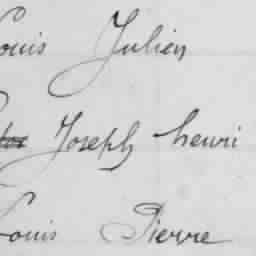 Louis Julien
Joseph henri
Louis Pierre